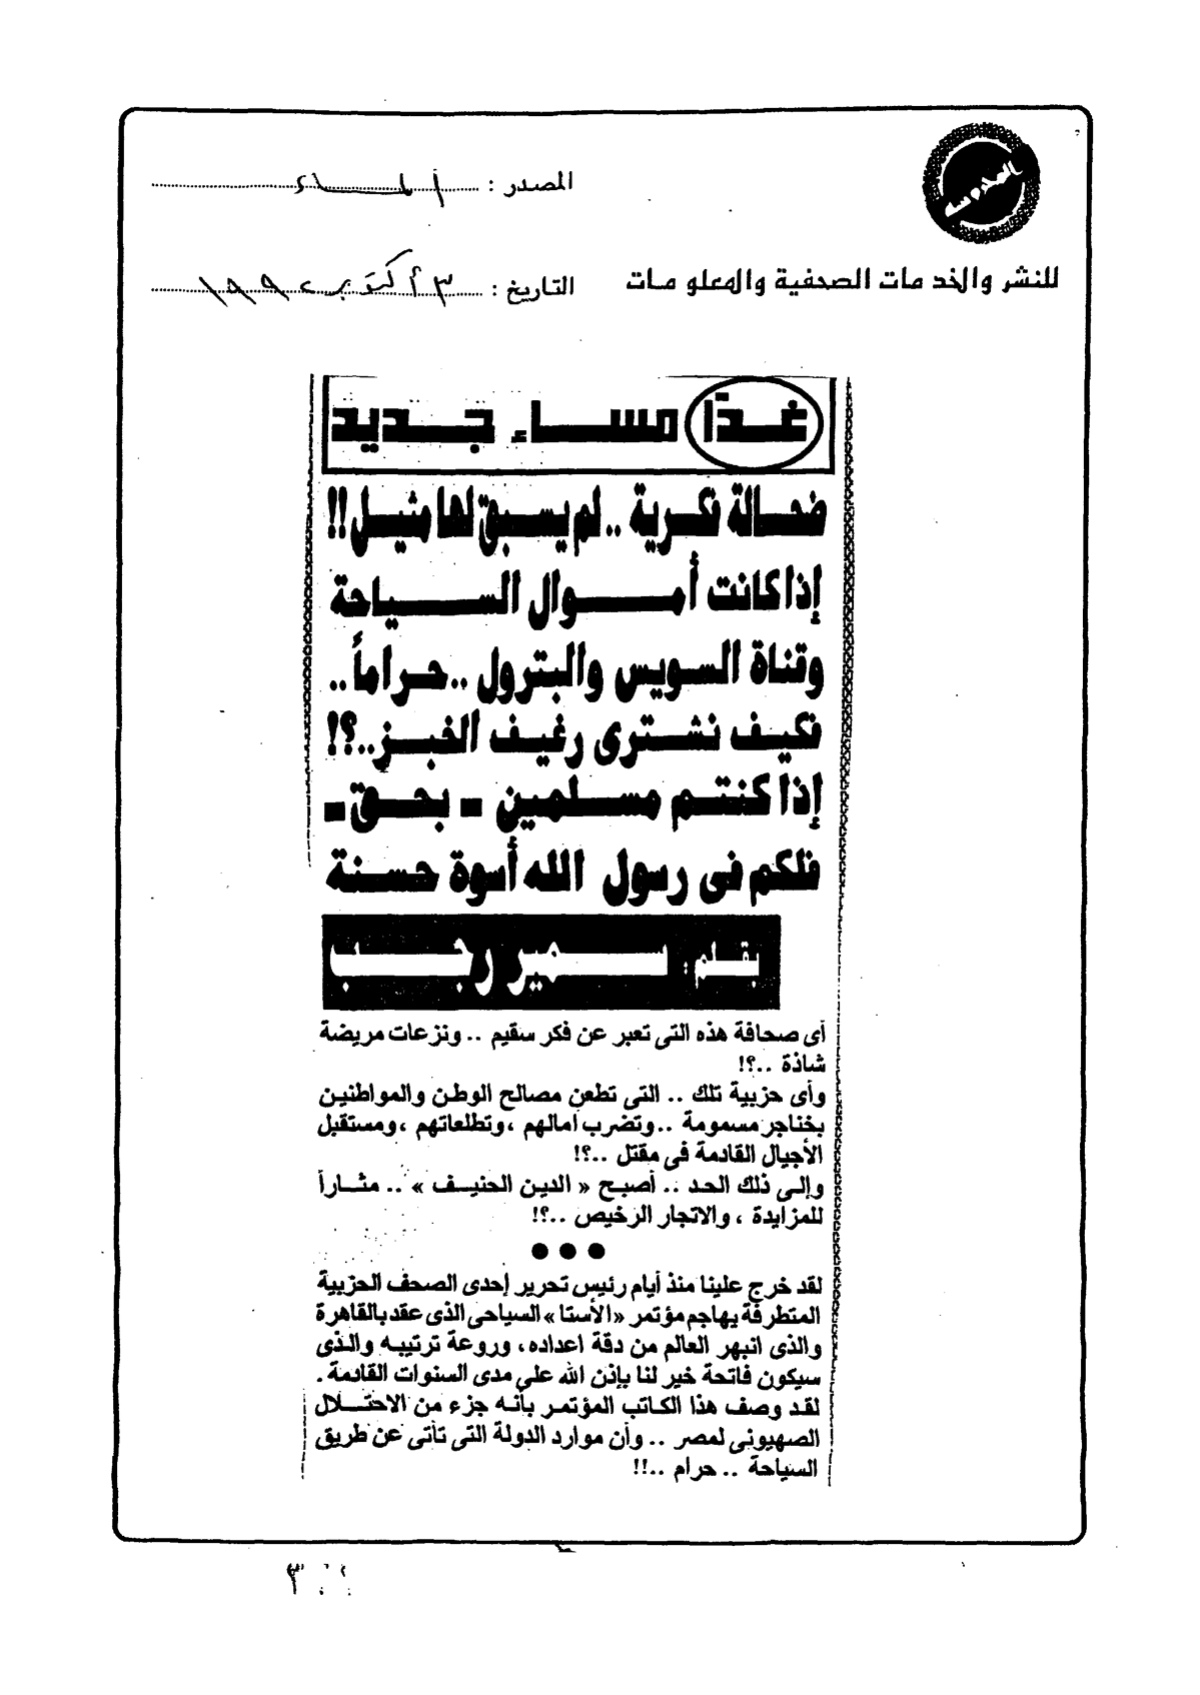 المحروسة
المصدر : المساء
للنشر والخدمات الصحفية والمعلومات
التاريخ : ٣ أكتوبر ١٩٩٢
غدًا مساء جديد
ضحالة فكرية .. لم يسبق لها مثيل !!
إذا كانت أموال السياحة
وقناة السويس والبترول .. حراماً ..
فكيف نشترى رغيف الخبز ..؟!
إذا كنتم مسلمين - بحق -
فلكم فى رسول الله أسوة حسنة
بقلم : سمير رجب
أى صحافة هذه التى تعبر عن فكر سقيم .. ونزعات مريضة
شاذة ..؟!
وأى حزبية تلك .. التى تطعن مصالح الوطن والمواطنين
بخناجر مسمومة .. وتضرب آمالهم ، وتطلعاتهم ، ومستقبل
الأجيال القادمة فى مقتل ..؟!
وإلى ذلك الحد .. أصبح « الدين الحنيف » .. مثاراً
للمزايدة ، والاتجار الرخيص ..؟!
● ● ●
لقد خرج علينا منذ أيام رئيس تحرير إحدى الصحف الحزبية
المتطرفة يهاجم مؤتمر «الأستا» السياحى الذى عقد بالقاهرة
والذى انبهر العالم من دقة اعداده ، وروعة ترتيبه والذى
سيكون فاتحة خير لنا بإذن الله على مدى السنوات القادمة .
لقد وصف هذا الكاتب المؤتمر بأنه جزء من الاحتلال
الصهيونى لمصر .. وأن موارد الدولة التى تأتى عن طريق
السياحة .. حرام ..!!